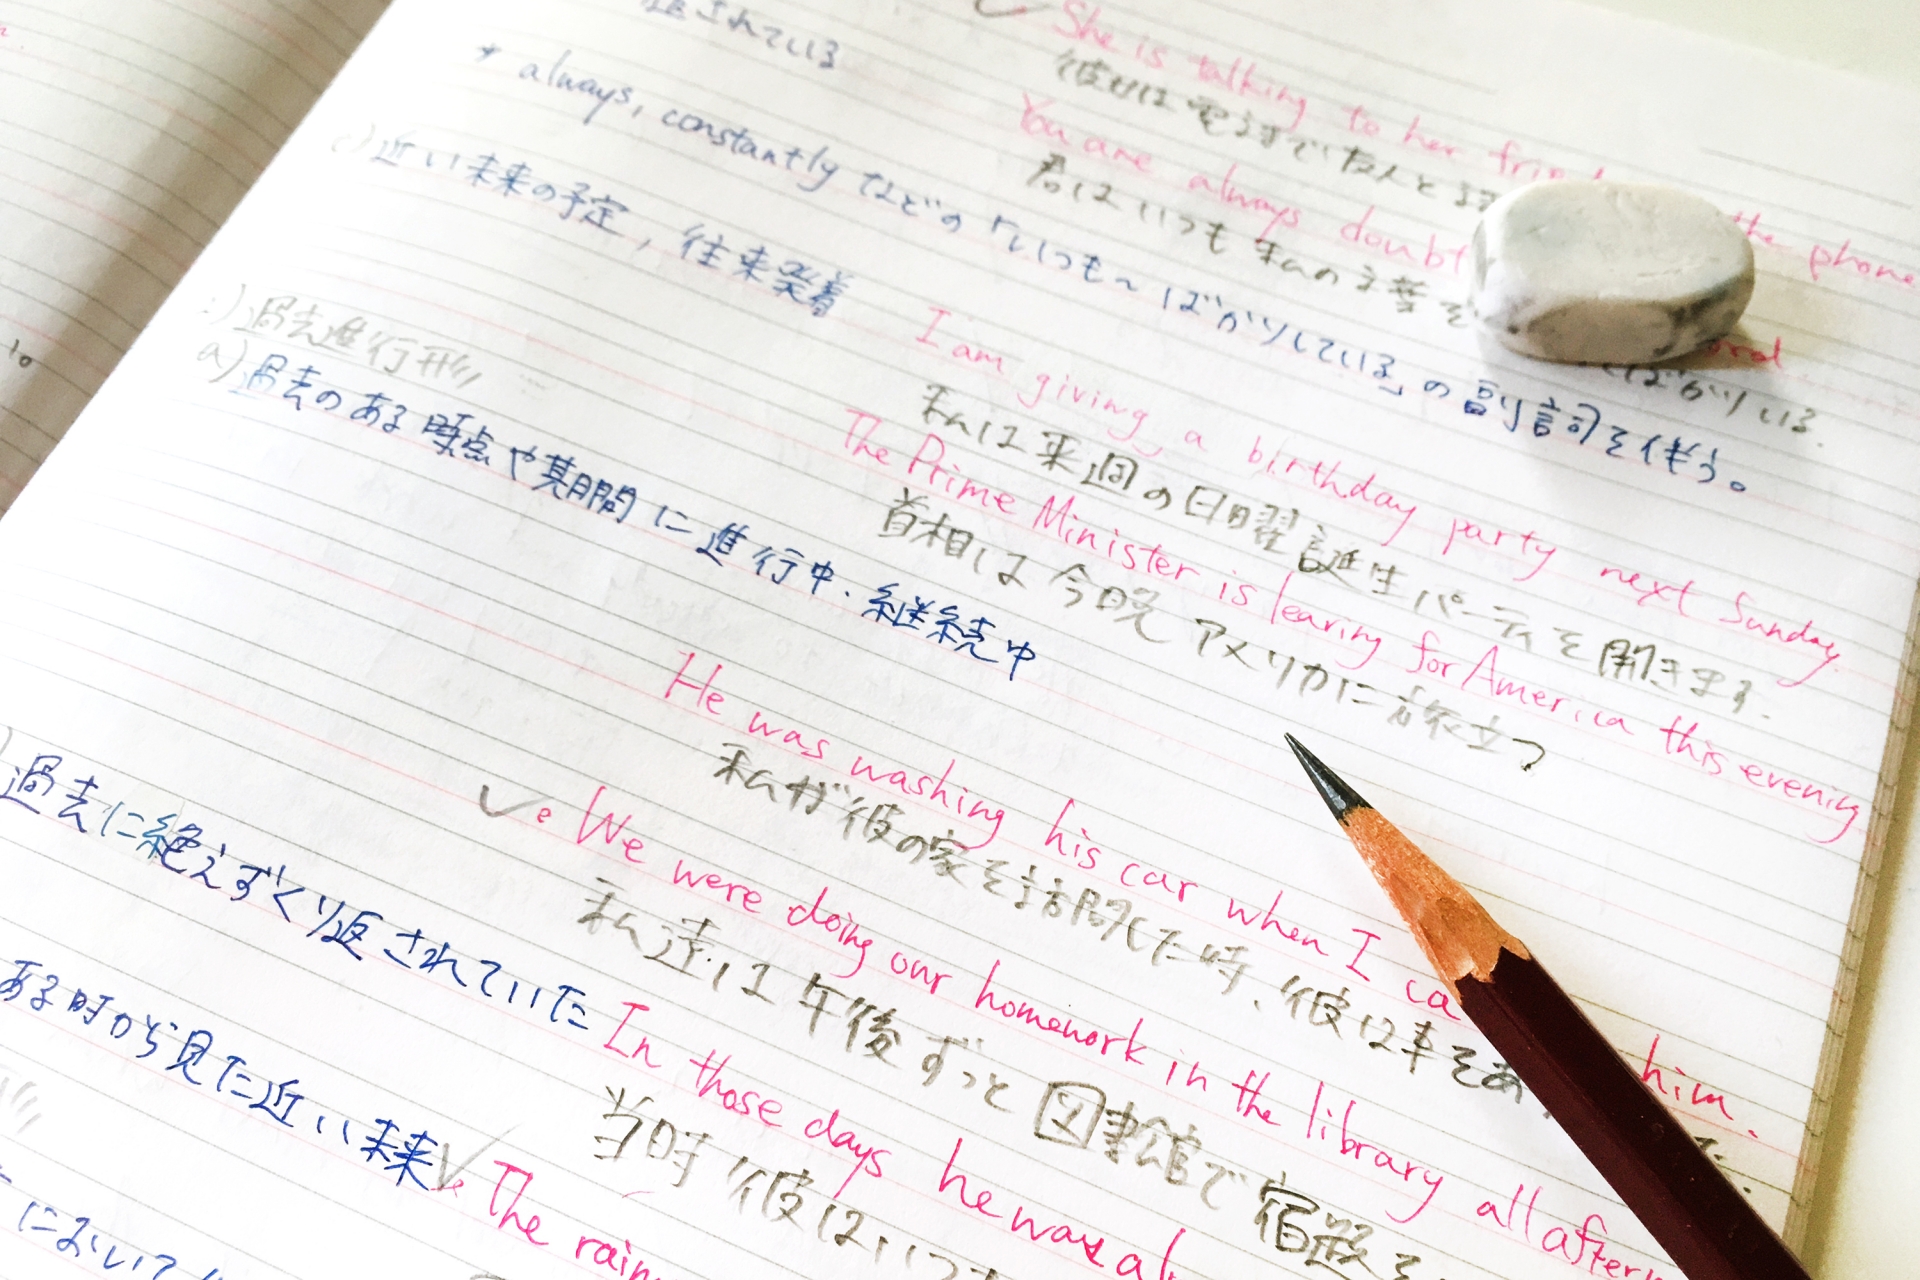 返されている
She is talking to her the phone
彼女は電話で友人と
* always, constantly などの「いつも～ばかりしている」の副詞を伴う。
You are always doubt
君はいつも私の言葉を ばかりいる.
c) 近い未来の予定, 往来発着
I am giving a birthday party next Sunday.
私は来週の日曜誕生パーティを開きます.
The Prime Minister is leaving for America this evening
首相は今晩アメリカに旅立つ
過去進行形
a) 過去のある時点や期間に進行中.継続中
He was washing his car when I him.
私が彼の家を訪問した時、彼は車を
過去に絶えずくり返されていた
We were doing our homework in the library all
私達は午後ずっと図書館で宿題を
In those days he was
当時彼はいつも
ある時から見た近い未来
The
において